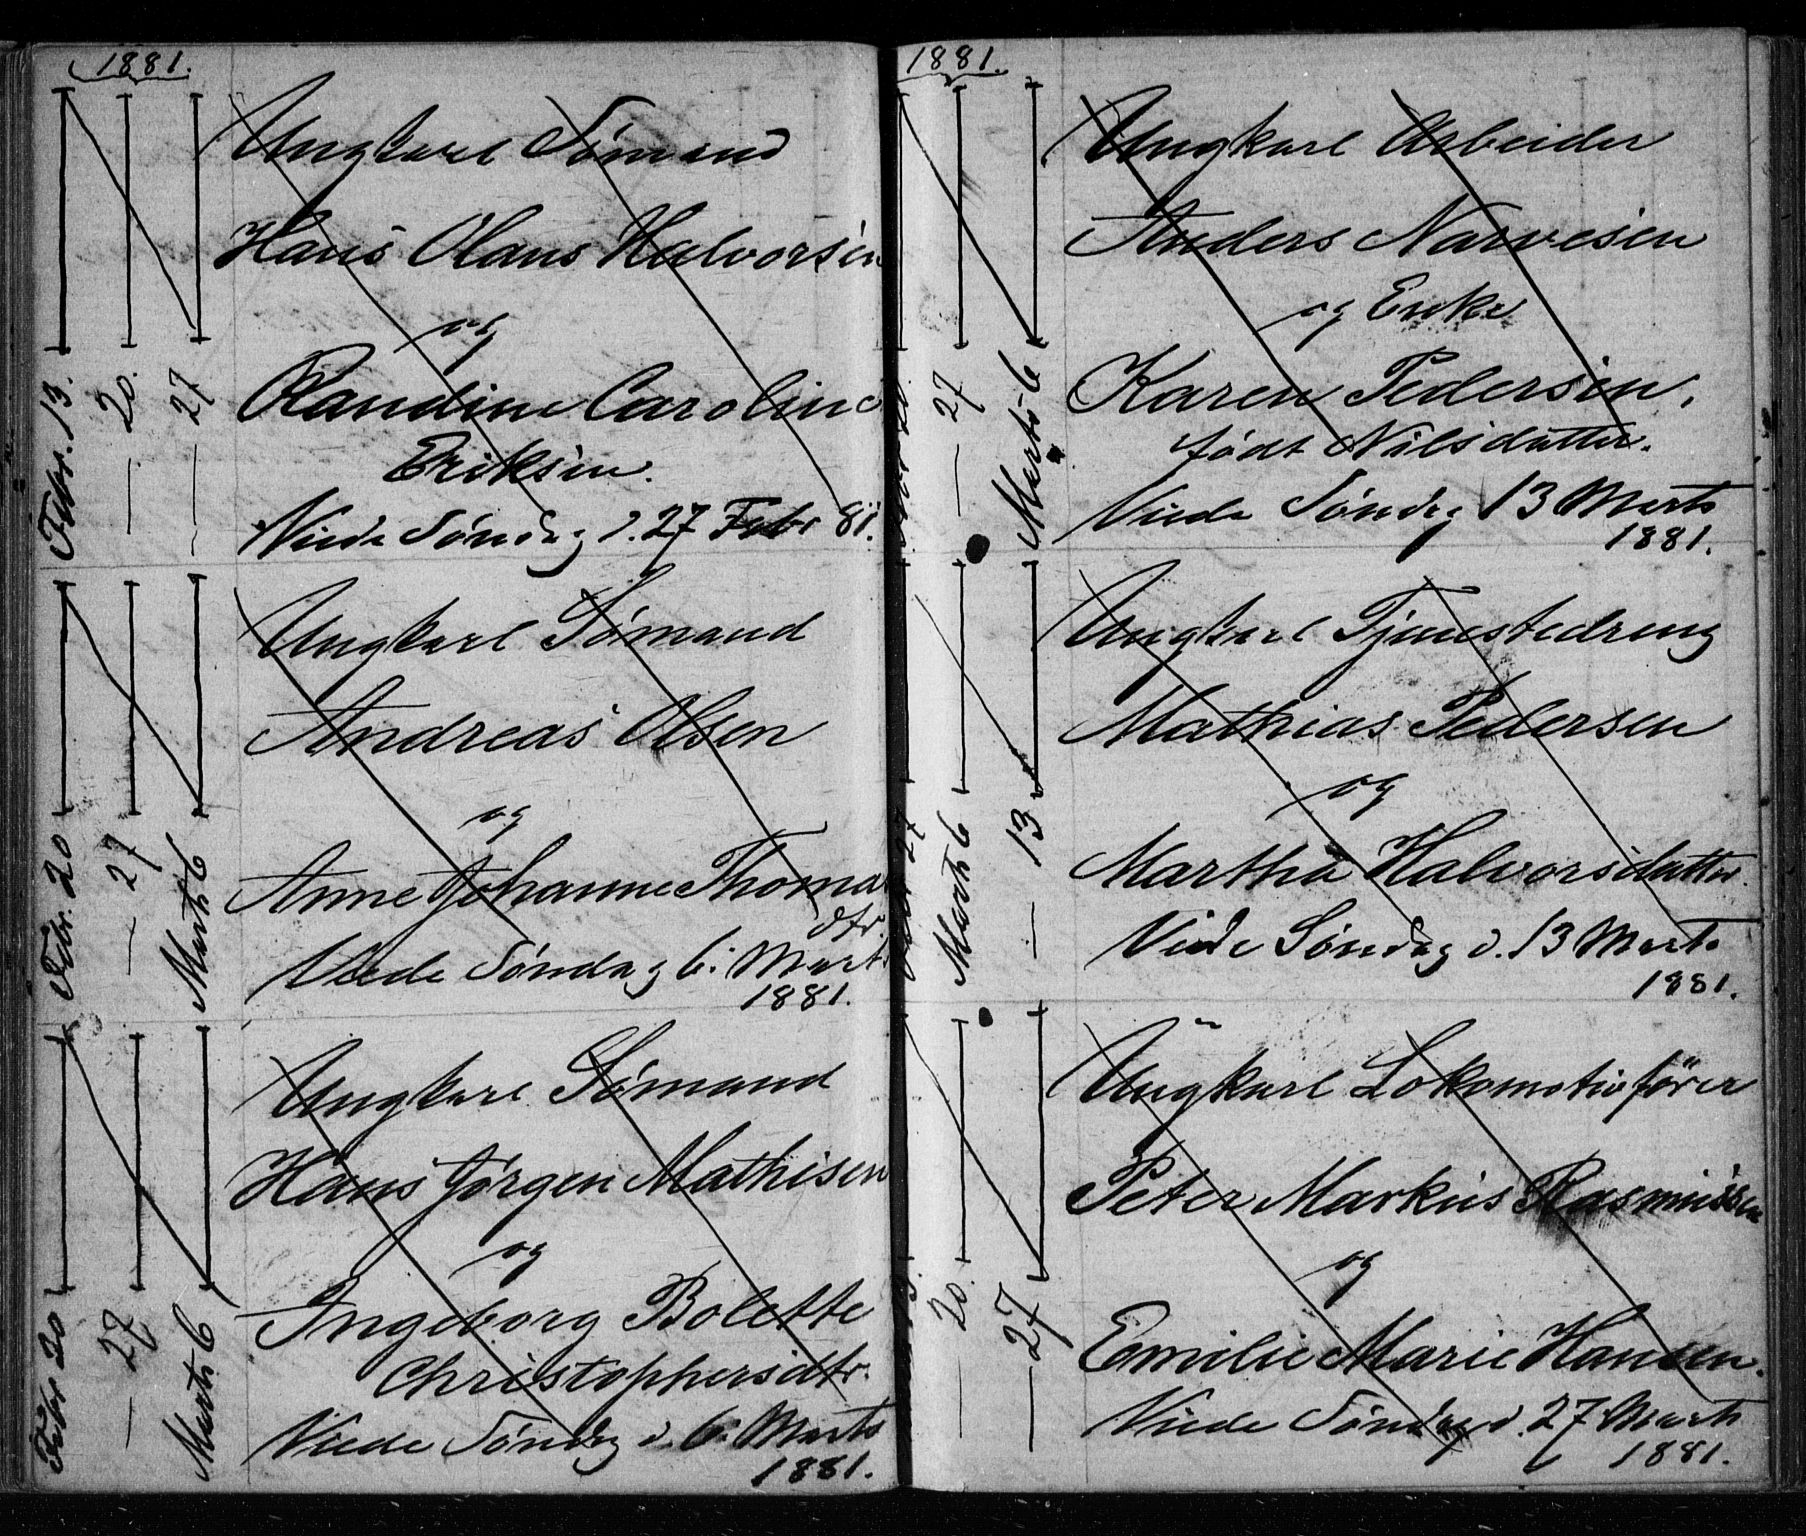 1881.
Febr. 13.
— 20.
— 27
Ungkarl Sømand
Hans Olaus Halvorsen
og
Randine Caroline
Eriksen.
Viede Søndag d. 27 Febr 81.
Febr. 20
— 27
Marts 6
Ungkarl Sømand
Andreas Olsen
og
Anne Johanne Thomas
dtr.
Viede Søndag 6. Marts
1881.
Febr 20
— 27
Marts 6
Ungkarl Sømand
Hans Jørgen Mathisen
og
Ingeborg Bolette
Christophersdtr.
Viede Søndag d. 6. Marts
1881.
1881.
— 27
Marts 6
Ungkarl Arbeider
Anders Narvesen
og Enke
Karen Pedersen,
født Nilsdatter.
Viede Søndag 13 Marts
1881.
Marts 6
— 13
Ungkarl Tjenestedreng
Mathias Pedersen
og
Martha Halvorsdatter.
Viede Søndag d. 13 Marts
1881.
— 20.
— 27
Ungkarl Lokomotivfører
Peter Markus Rasmussen
og
Emilie Marie Hansen.
Viede Søndag d. 27 Marts
1881.